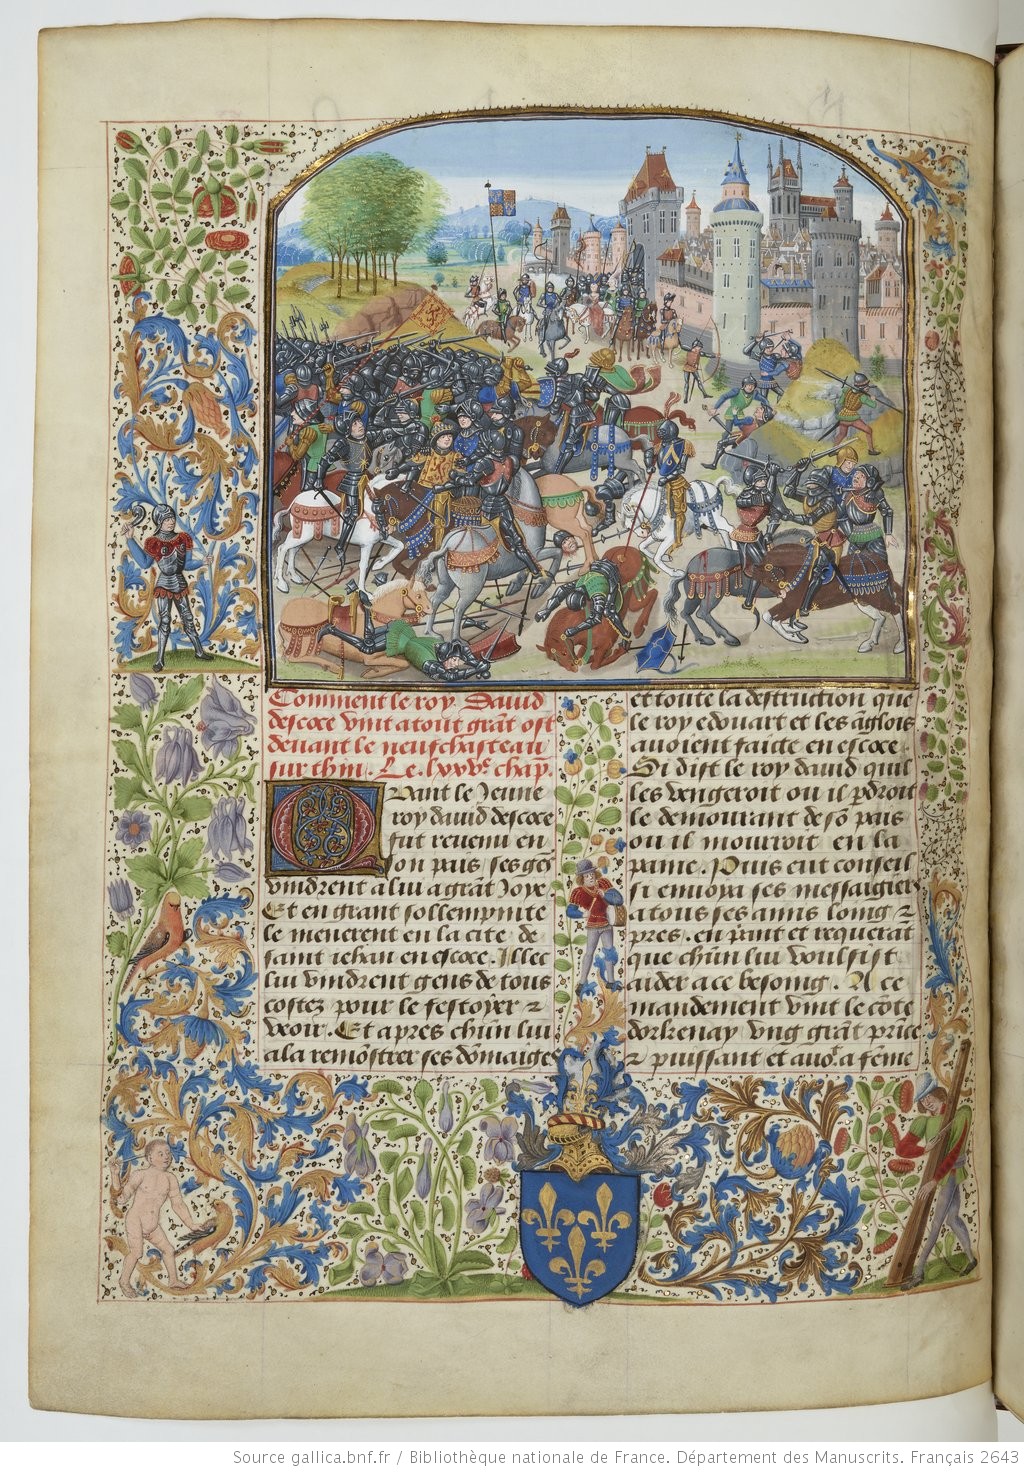 Comment le roy David
descoce vint a tout grāt ost
devant le neufchasteau
sur thin. Le. lxxve chap.
Quant le Jeune
roy david descoce
fut revenu en
son pais ses gēs
vindrent a lui a grāt Joye
Et en grant sollempnite
le menerent en la cite de
saint iehan en escoce. Illec
lui vindrent gens de tous
costez pour le festoyer et
veoir. Et apres chūn lui
ala remōstrer ses dōmaiges
et toute la destruction que
le roy edouart et les āglois
avoient faicte en escoce.
Si dist le roy david quil
les vengeroit ou il pdroit
le demourant de sō pais
ou il mourroit en la
paine. Puis eut conseil
si envoya ses messaigiers
a tous ses amis loing et
pres. en priant et requerāt
que chūn lui voulsist
aider a ce besoing. A ce
mandement vint le cōte
dorkenay ung grāt prīce
et puissant et avoit a fēme
Source gallica.bnf.fr / Bibliothèque nationale de France. Département des Manuscrits. Français 2643